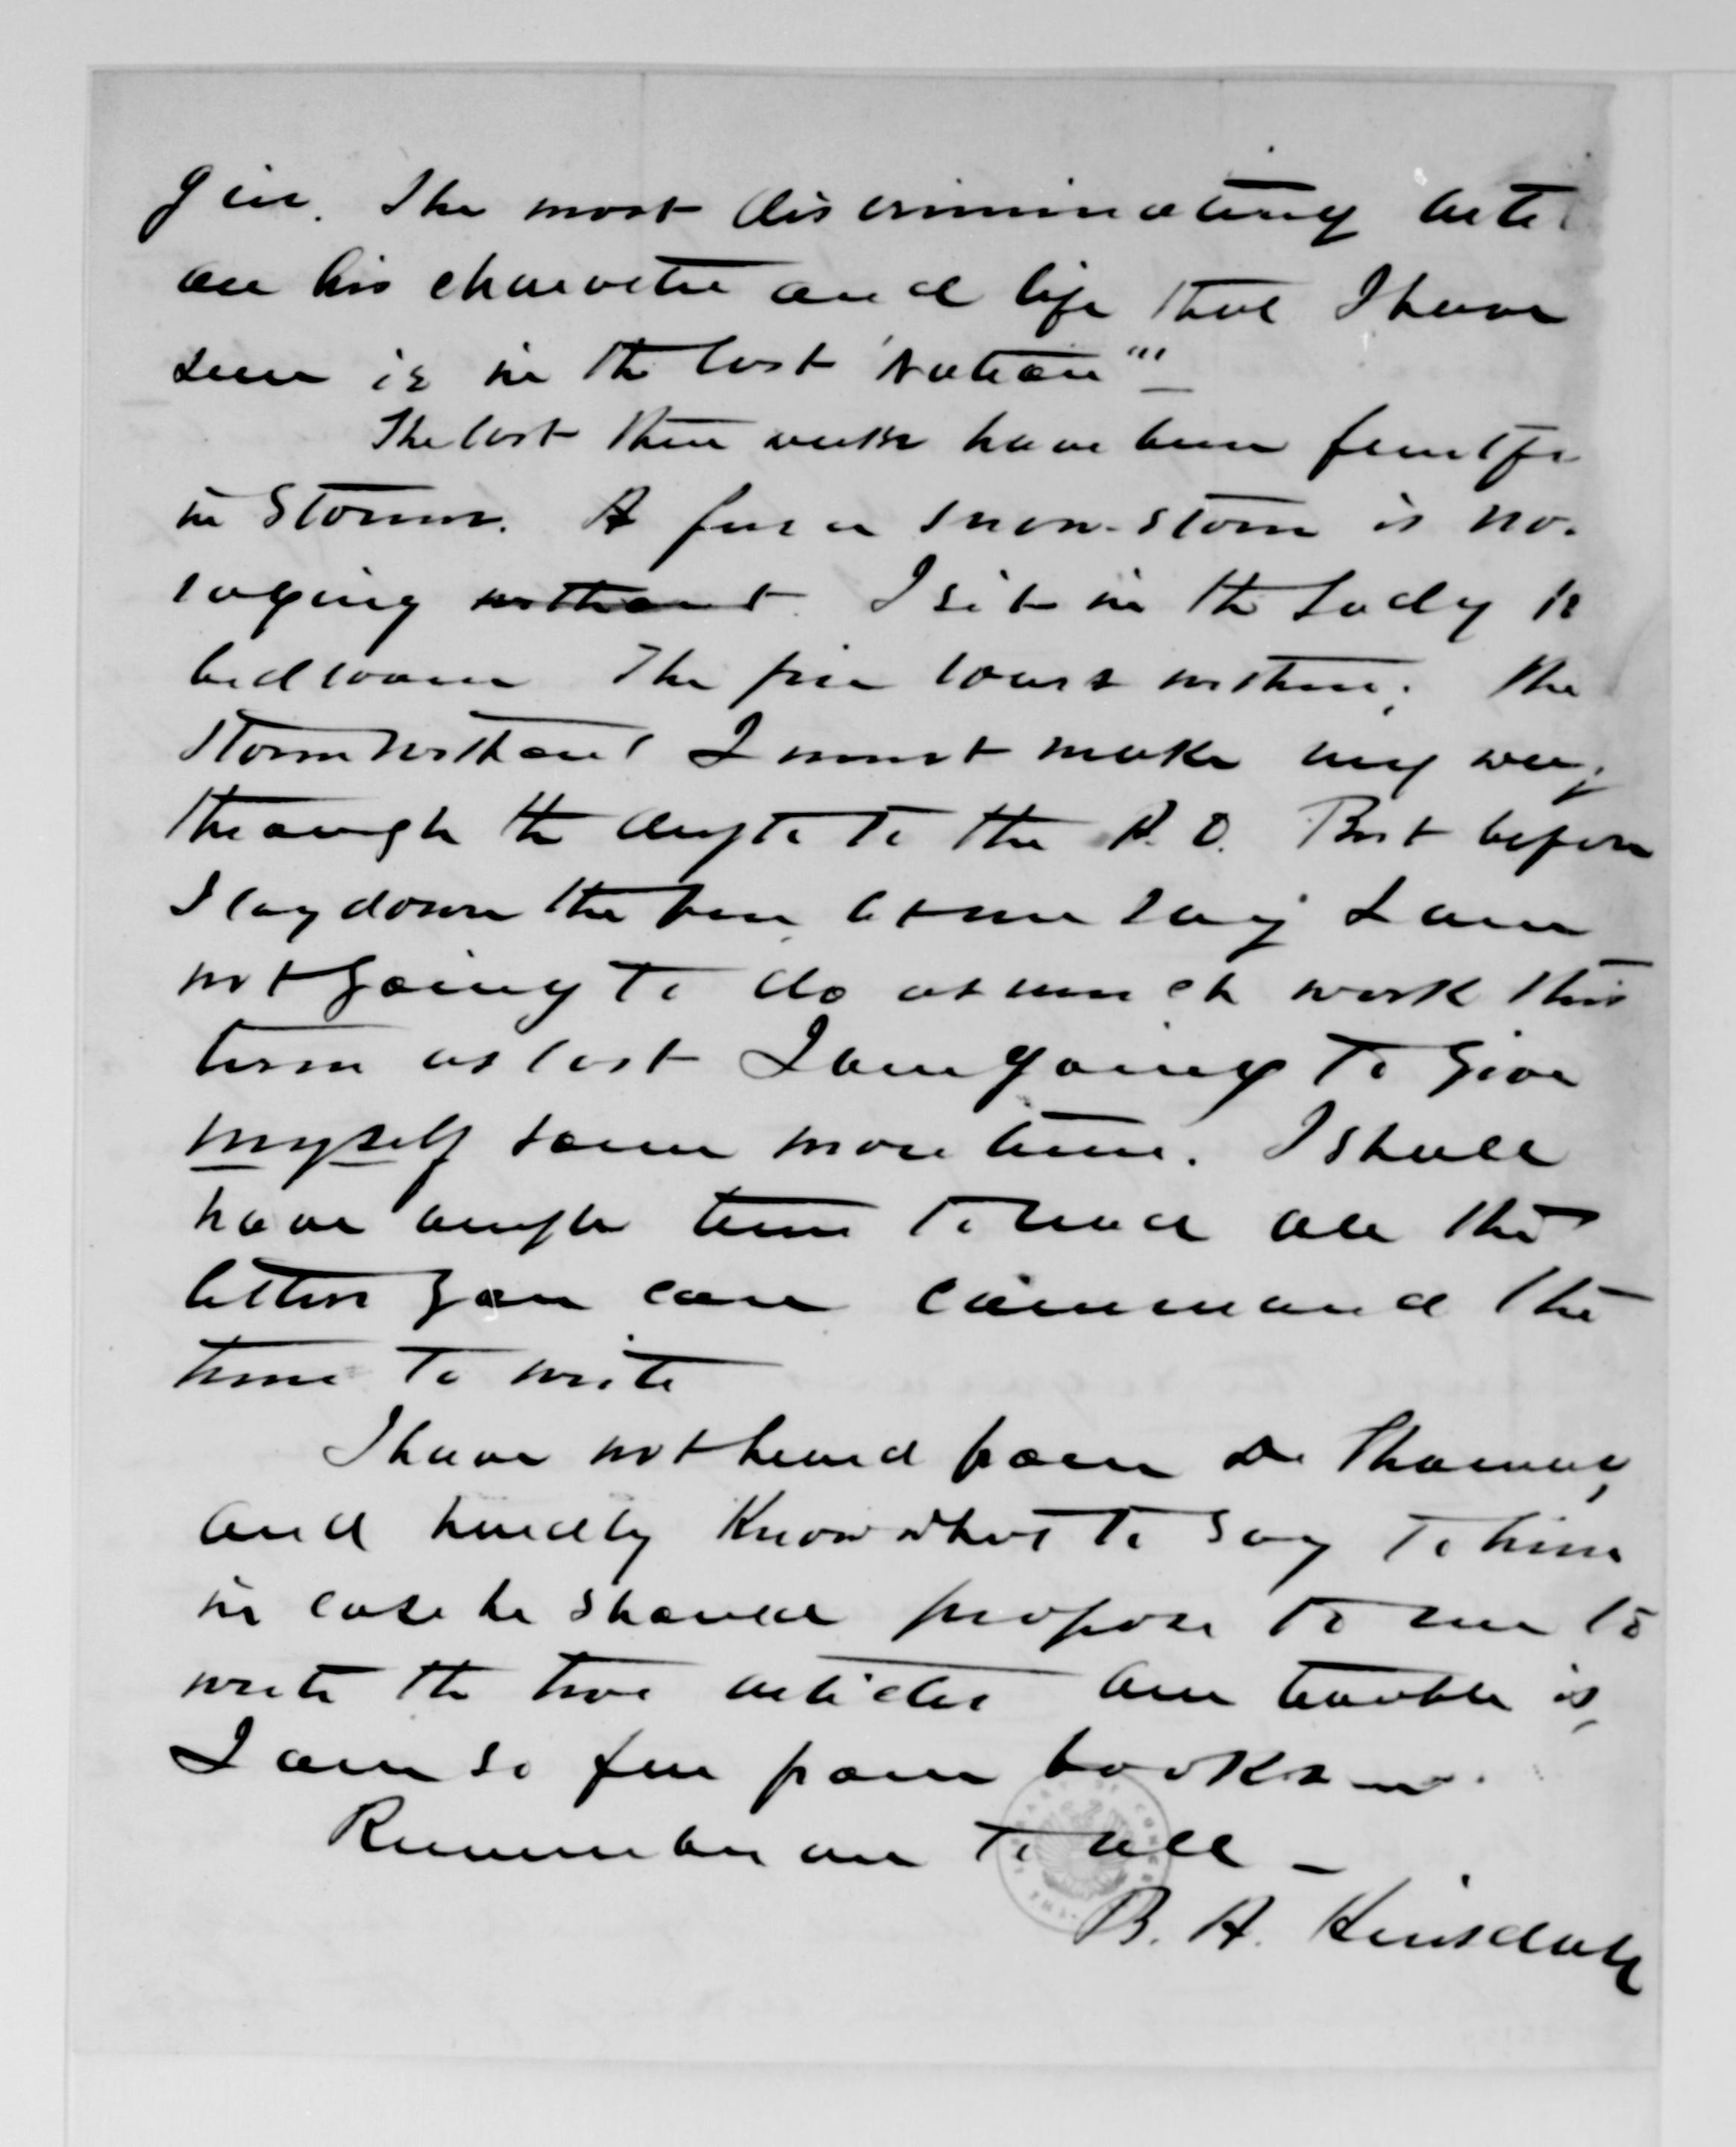 give. The most discriminating
on his character and life that I have
seen is in the last "Nation"
The last three weeks have been fruitful
in storms. A fierce snow-storm is now
raging without. I sit in the Lady's
bedroom The fire roars within; the
storm without I must make my way
through the drifts to the P. O. But before
I lay down the pen let me say I am
not going to do as much work this
term as last I am going to give
myself some more time. I shall
have ample time to read all the
letters you can command the
time to write
I have not heard from Dr Thomas,
and hardly know what to say to him
in case he should propose to me to
write the two articles One trouble is,
I am so far from books
Remember me to all
B. A. Hinsdale